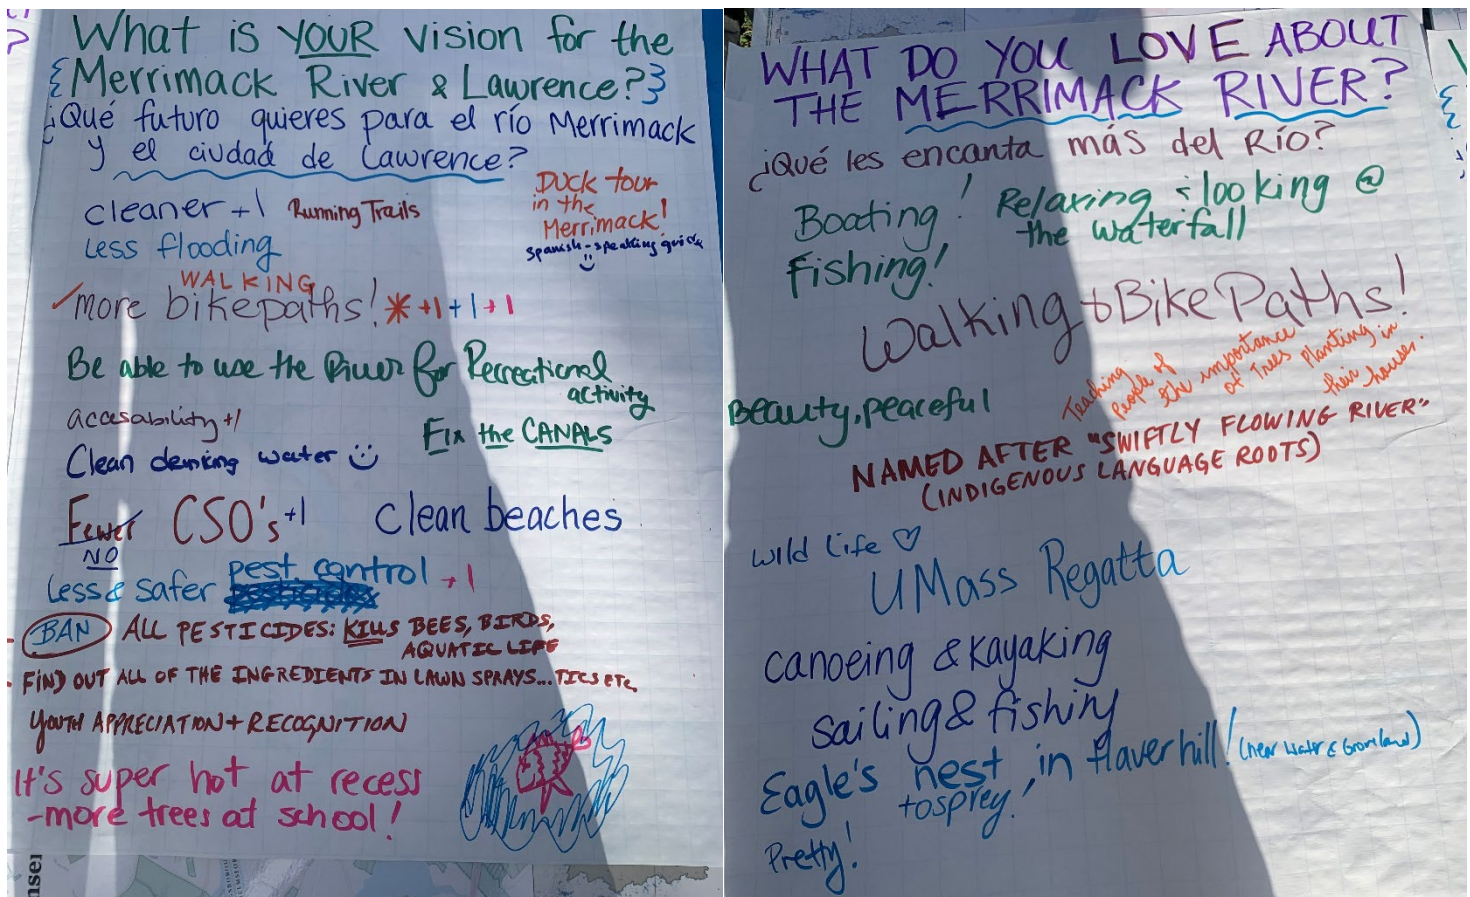 What is YOUR vision for the
{Merrimack River & Lawrence?}
¿Qué futuro quieres para el río Merrimack
y el ciudad de Lawrence?
cleaner +1
Running Trails
Duck tour
in the
Merrimack!
Spanish-speaking guide
less flooding
WALKING
more bikepaths! * +1 +1 +1
Be able to use the River for Recreational
activity
accasability +1
Fix the CANALS
Clean drinking water
Fewer CSO's +1
NO
Clean beaches
Less & safer pest control +1
BAN ALL PESTICIDES: KILLS BEES, BIRDS,
AQUATIC LIFE
FIND OUT ALL OF THE INGREDIENTS IN LAWN SPRAYS... TICS ETC.
YOUTH APPRECIATION + RECOGNITION
It's super hot at recess
-more trees at school!
WHAT DO YOU LOVE ABOUT
THE MERRIMACK RIVER?
¿Qué les encanta más del Río?
Boating!
Relaxing & looking @
the waterfall
Fishing!
Walking & Bike Paths!
Teaching
People of
the importance
of Trees Planting in
their houses.
Beauty, peaceful
NAMED AFTER "SWIFTLY FLOWING RIVER"
(INDIGENOUS LANGUAGE ROOTS)
wild life ♡
UMass Regatta
canoeing & kayaking
sailing & fishing
Eagle's nest, in Haverhill! (near water & Groveland)
+osprey!
Pretty!